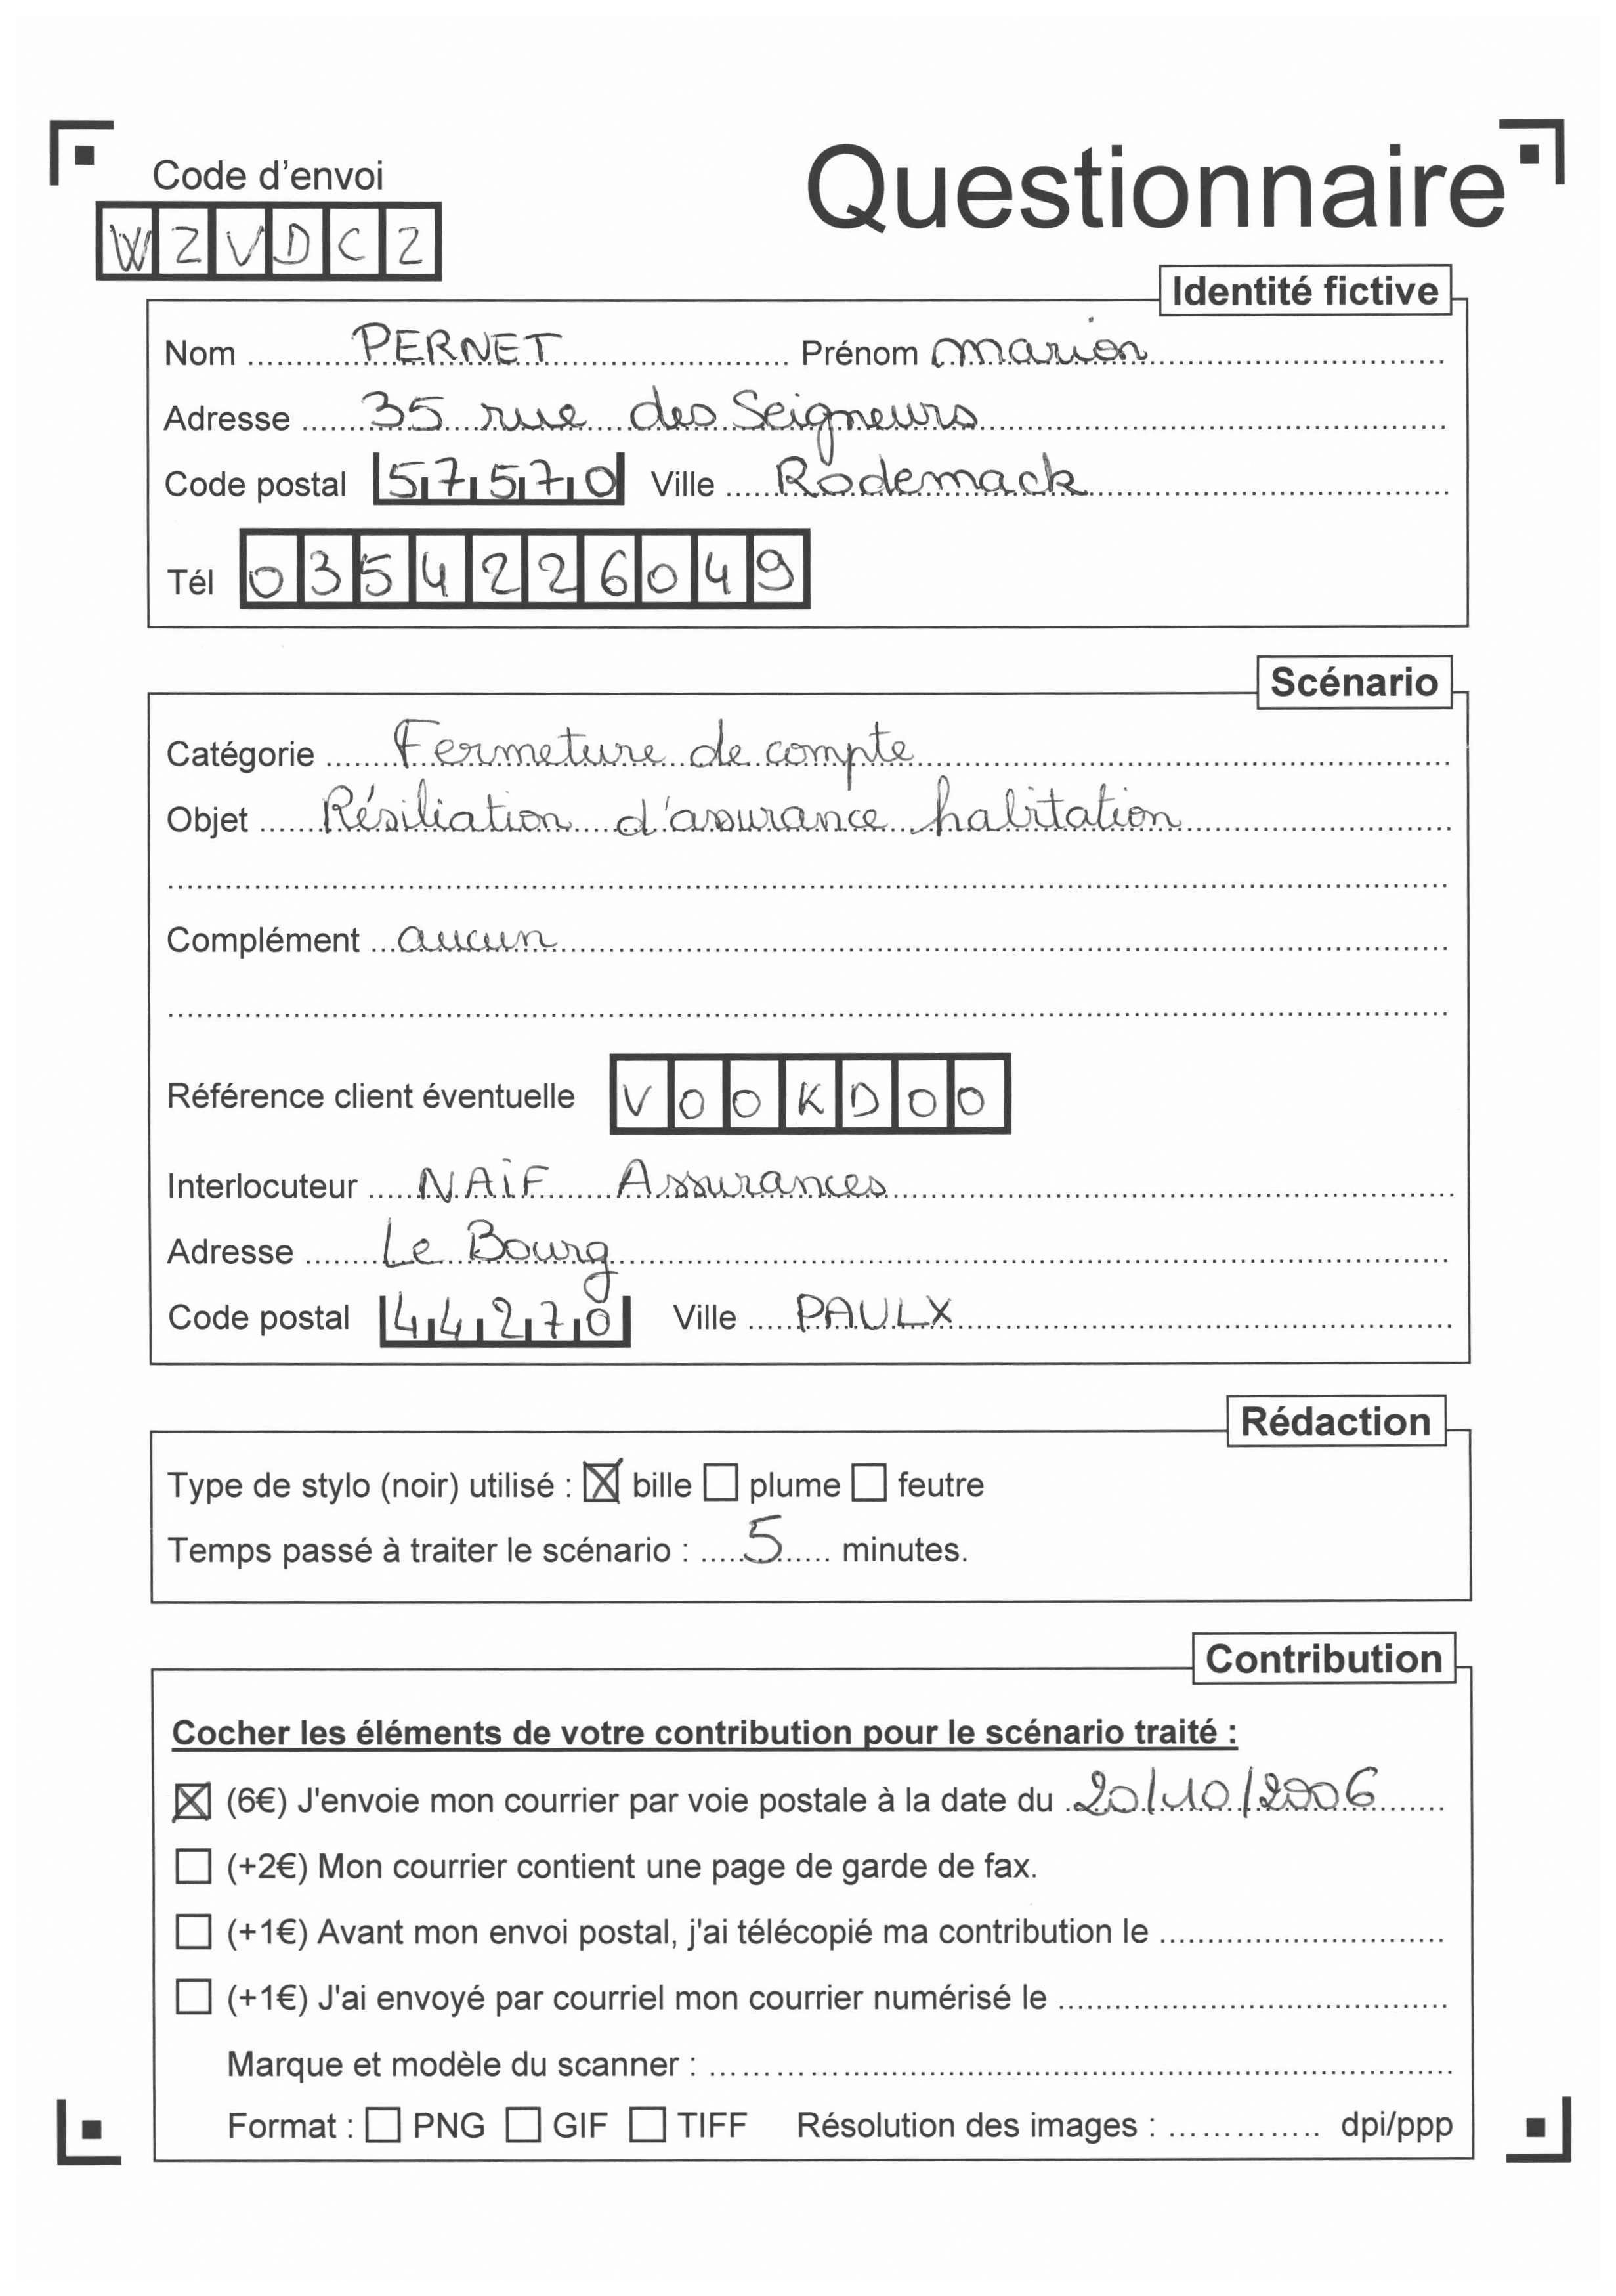 Code d'envoi
Questionnaire
WZVDCZ
Identité fictive
Nom PERNET Prénom Marion
Adresse 35 rue des Seigneurs
Code postal 57570 Ville Rodemack
Tél 0354226049
Scénario
Catégorie Fermeture de compte
Objet Résiliation d'assurance habitation
Complément aucun
Référence client éventuelle VOOKDOO
Interlocuteur NAIF Assurances
Adresse Le Bourg
Code postal 44270 Ville PAULX
Rédaction
Type de stylo (noir) utilisé : ☒ bille ☐ plume ☐ feutre
Temps passé à traiter le scénario : 5 minutes.
Contribution
Cocher les éléments de votre contribution pour le scénario traité :
☒ (6€) J'envoie mon courrier par voie postale à la date du 20/10/2006
☐ (+2€) Mon courrier contient une page de garde de fax.
☐ (+1€) Avant mon envoi postal, j'ai télécopié ma contribution le
☐ (+1€) J'ai envoyé par courriel mon courrier numérisé le
Marque et modèle du scanner :
Format : ☐ PNG ☐ GIF ☐ TIFF Résolution des images : dpi/ppp